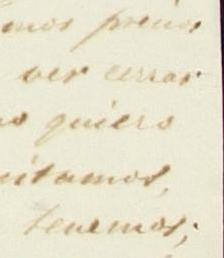 mos
ver cerrar
quiero
itamos,
tenemos;